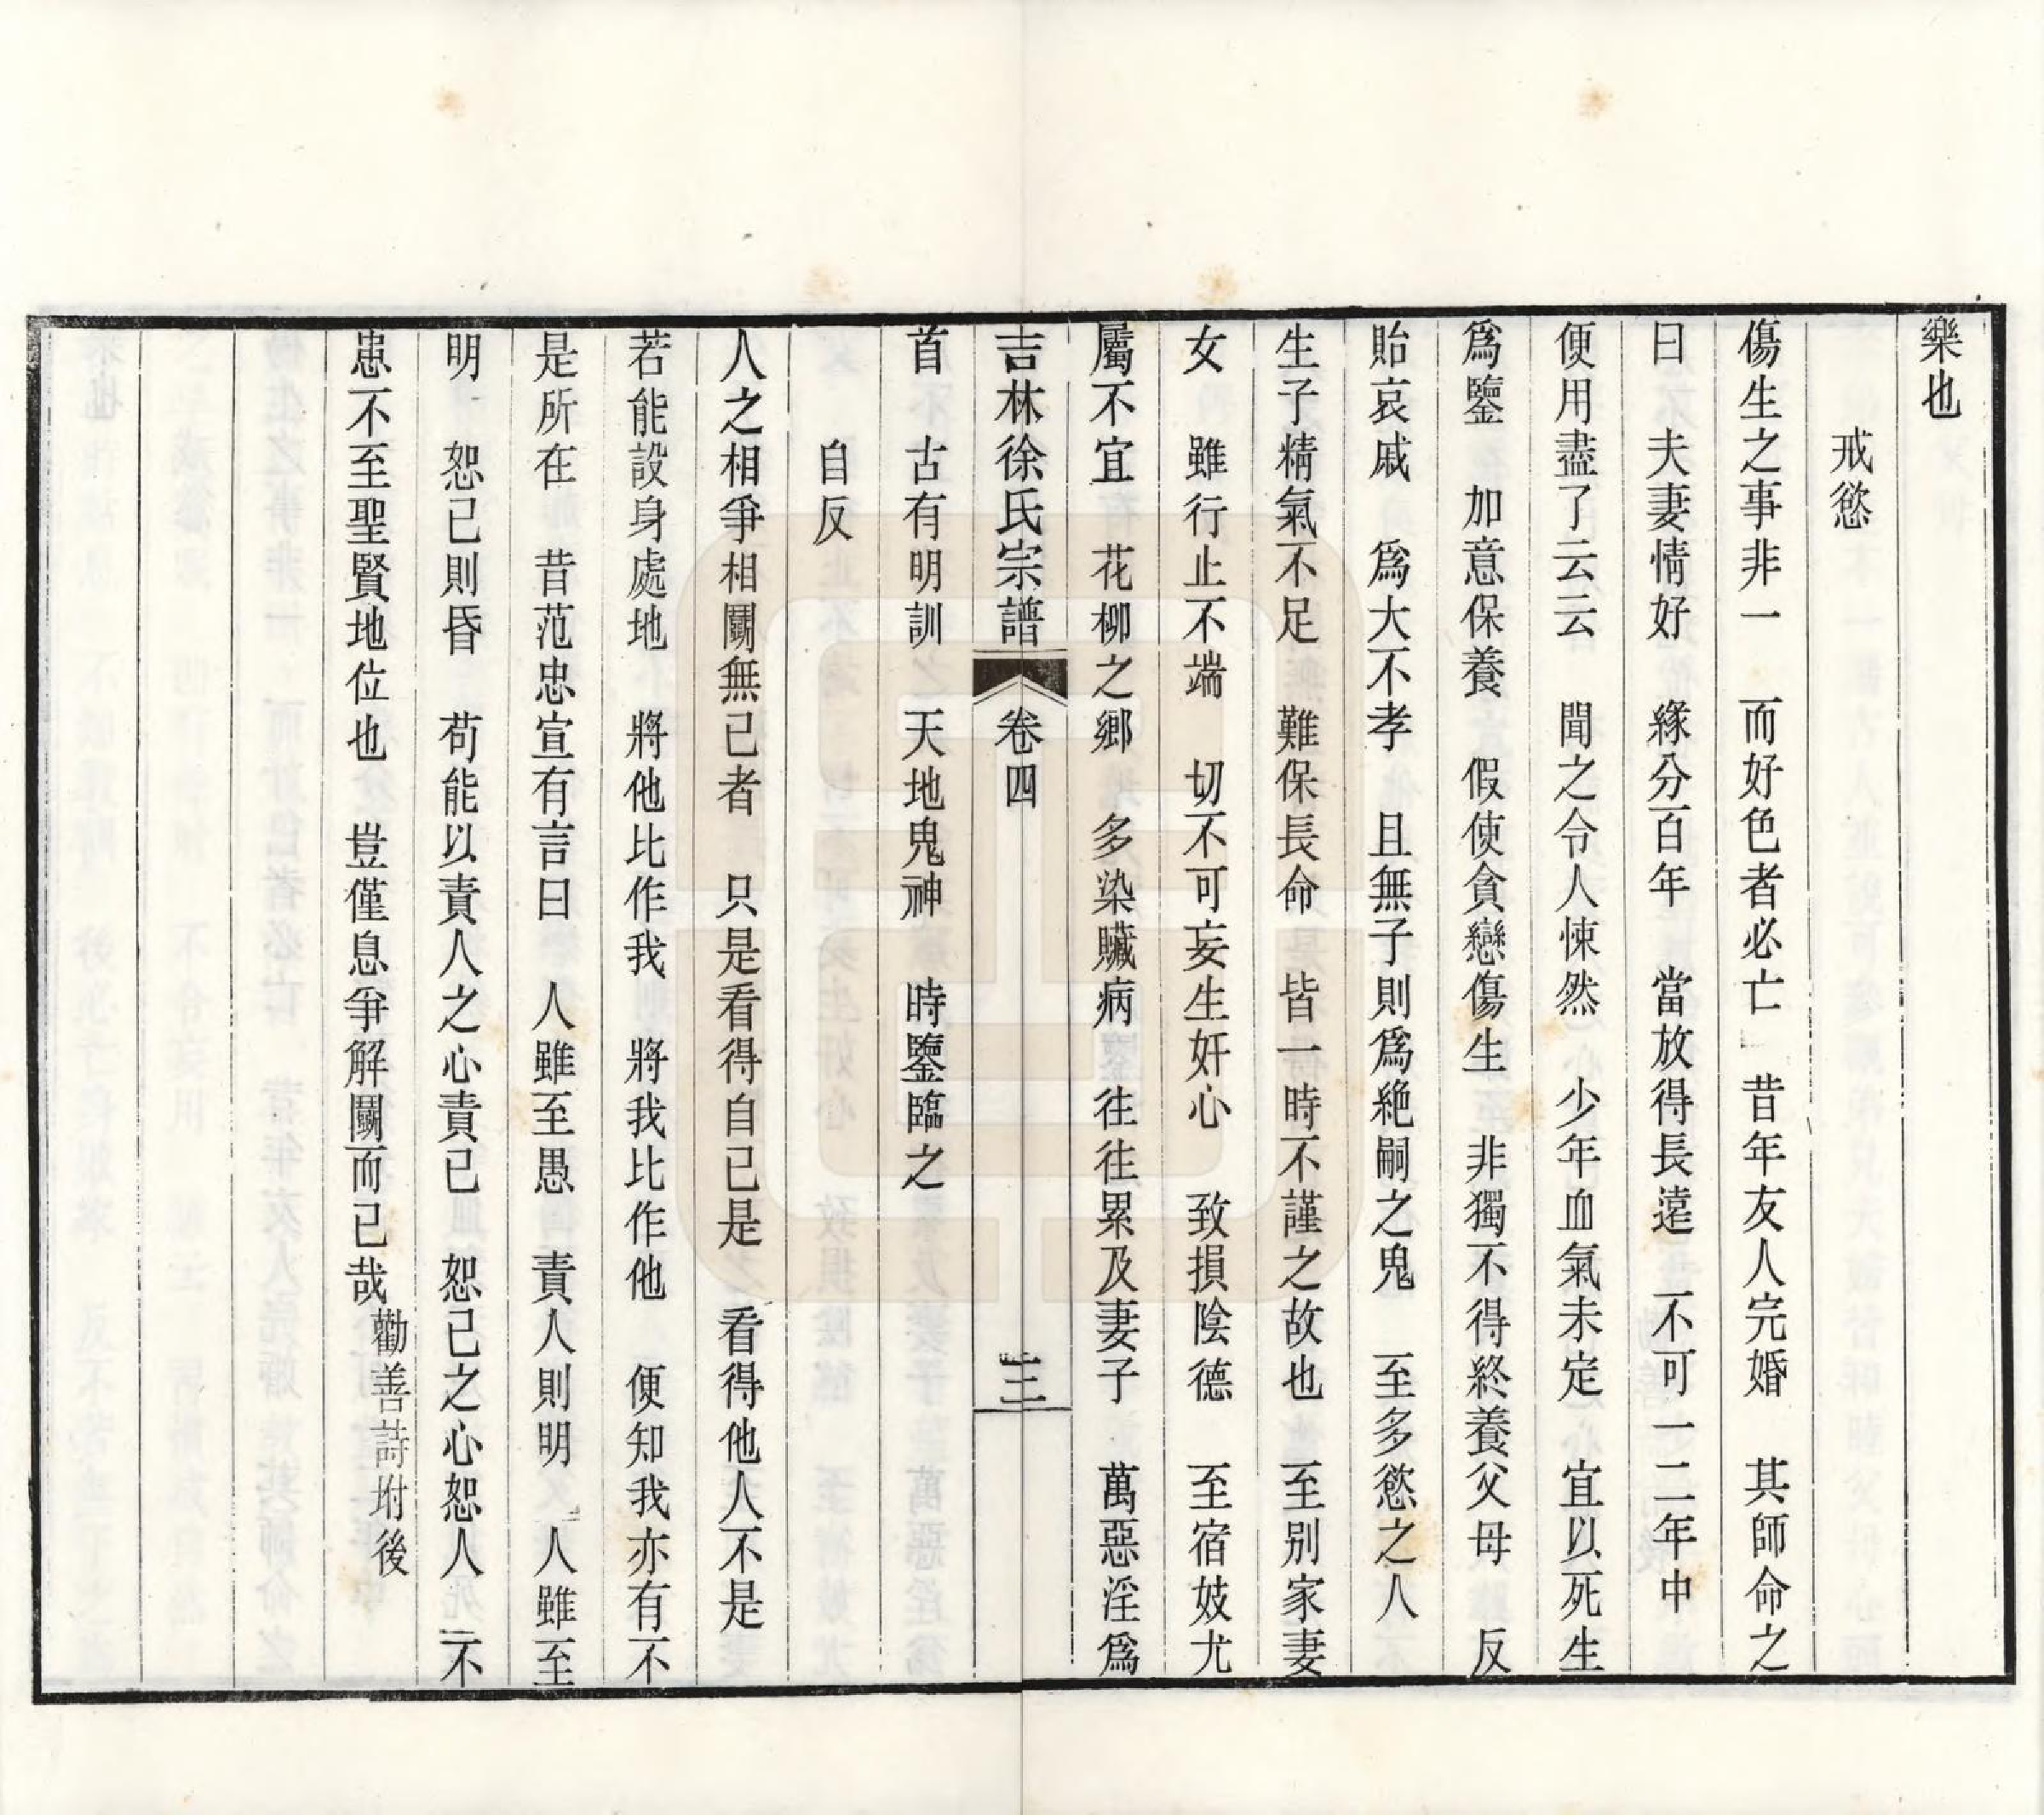 樂也
戒慾
傷生之事非一　而好色者必亡　昔年友人完婚　其師命之
曰　夫妻情好　緣分百年　當放得長遠　不可一二年中
便用盡了云云　聞之令人悚然　少年血氣未定　宜以死生
爲鑒　加意保養　假使貪戀傷生　非獨不得終養父母　反
貽哀戚　爲大不孝　且無子則爲絶嗣之鬼　至多慾之人
生子精氣不足　難保長命　皆一時不謹之故也　至别家妻
女　雖行止不端　切不可妄生奸心　致損陰德　至宿妓尤
屬不宜　花柳之鄉　多染贜病　往往累及妻子　萬惡淫爲
吉林徐氏宗譜　卷四　三
首　古有明訓　天地鬼神　時鑒臨之
自反
人之相爭相鬭無已者　只是看得自己是　看得他人不是
若能設身處地　將他比作我　將我比作他　便知我亦有不
是所在　昔范忠宣有言曰　人雖至愚　責人則明　人雖至
明　恕己則昏　苟能以責人之心責己　恕己之心恕人　不
患不至聖賢地位也　豈僅息爭解鬭而已哉
勸善詩坿後